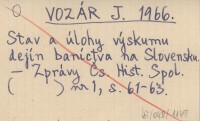 VOZÁR J. 1966.
Stav a úlohy výskumu
dejín baníctva na Slovensku.
— Zprávy Čs. Hist. Spol.
( ) nr 1, s. 61-63.